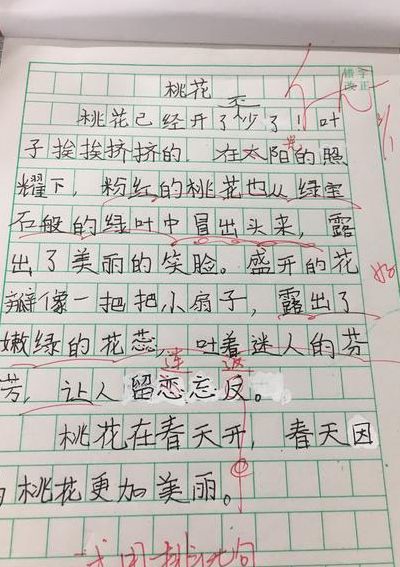 错字
改正
桃花
桃花已经开了不少了！叶
子挨挨挤挤的，在太阳光的照
耀下，粉红的桃花也从绿宝
石般的绿叶中冒出头来，露
出了美丽的笑脸。盛开的花
瓣像一把把小扇子，露出了
好
嫩绿的花蕊，吐着迷人的芬
连 返
芳，让人留恋忘反。
桃花在春天开，春天因
为桃花更加美丽。